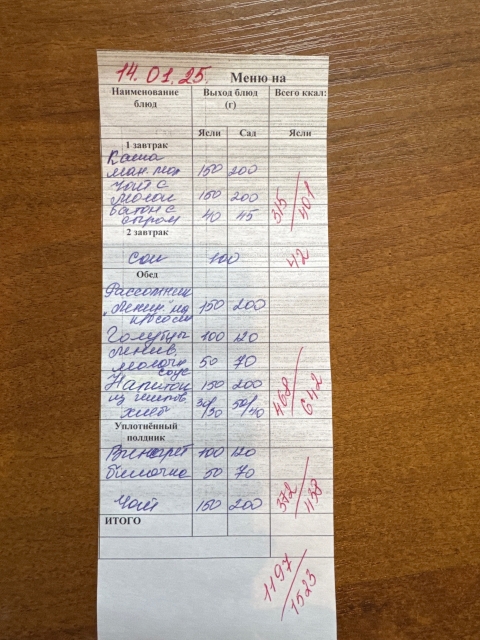 14.01.25. Меню на
Наименование блюд Выход блюд (г) Всего ккал:
Ясли Сад Ясли
1 завтрак
Каша
ман. мол 150 200
Чай с
молок 150 200
батон с
сыром 40 45 315/401
2 завтрак
сок 100 42
Обед
Рассольник
"Ленин." на 150 200
Голубцы 100 120
ленив.
молочн 50 70
соус
Напиток 150 200
из шипов.
хлеб 30/30 50/40 468/642
Уплотнённый
полдник
Винегрет 100 120
булочка 50 70
Чай 150 200 372/438
ИТОГО
1197/1523